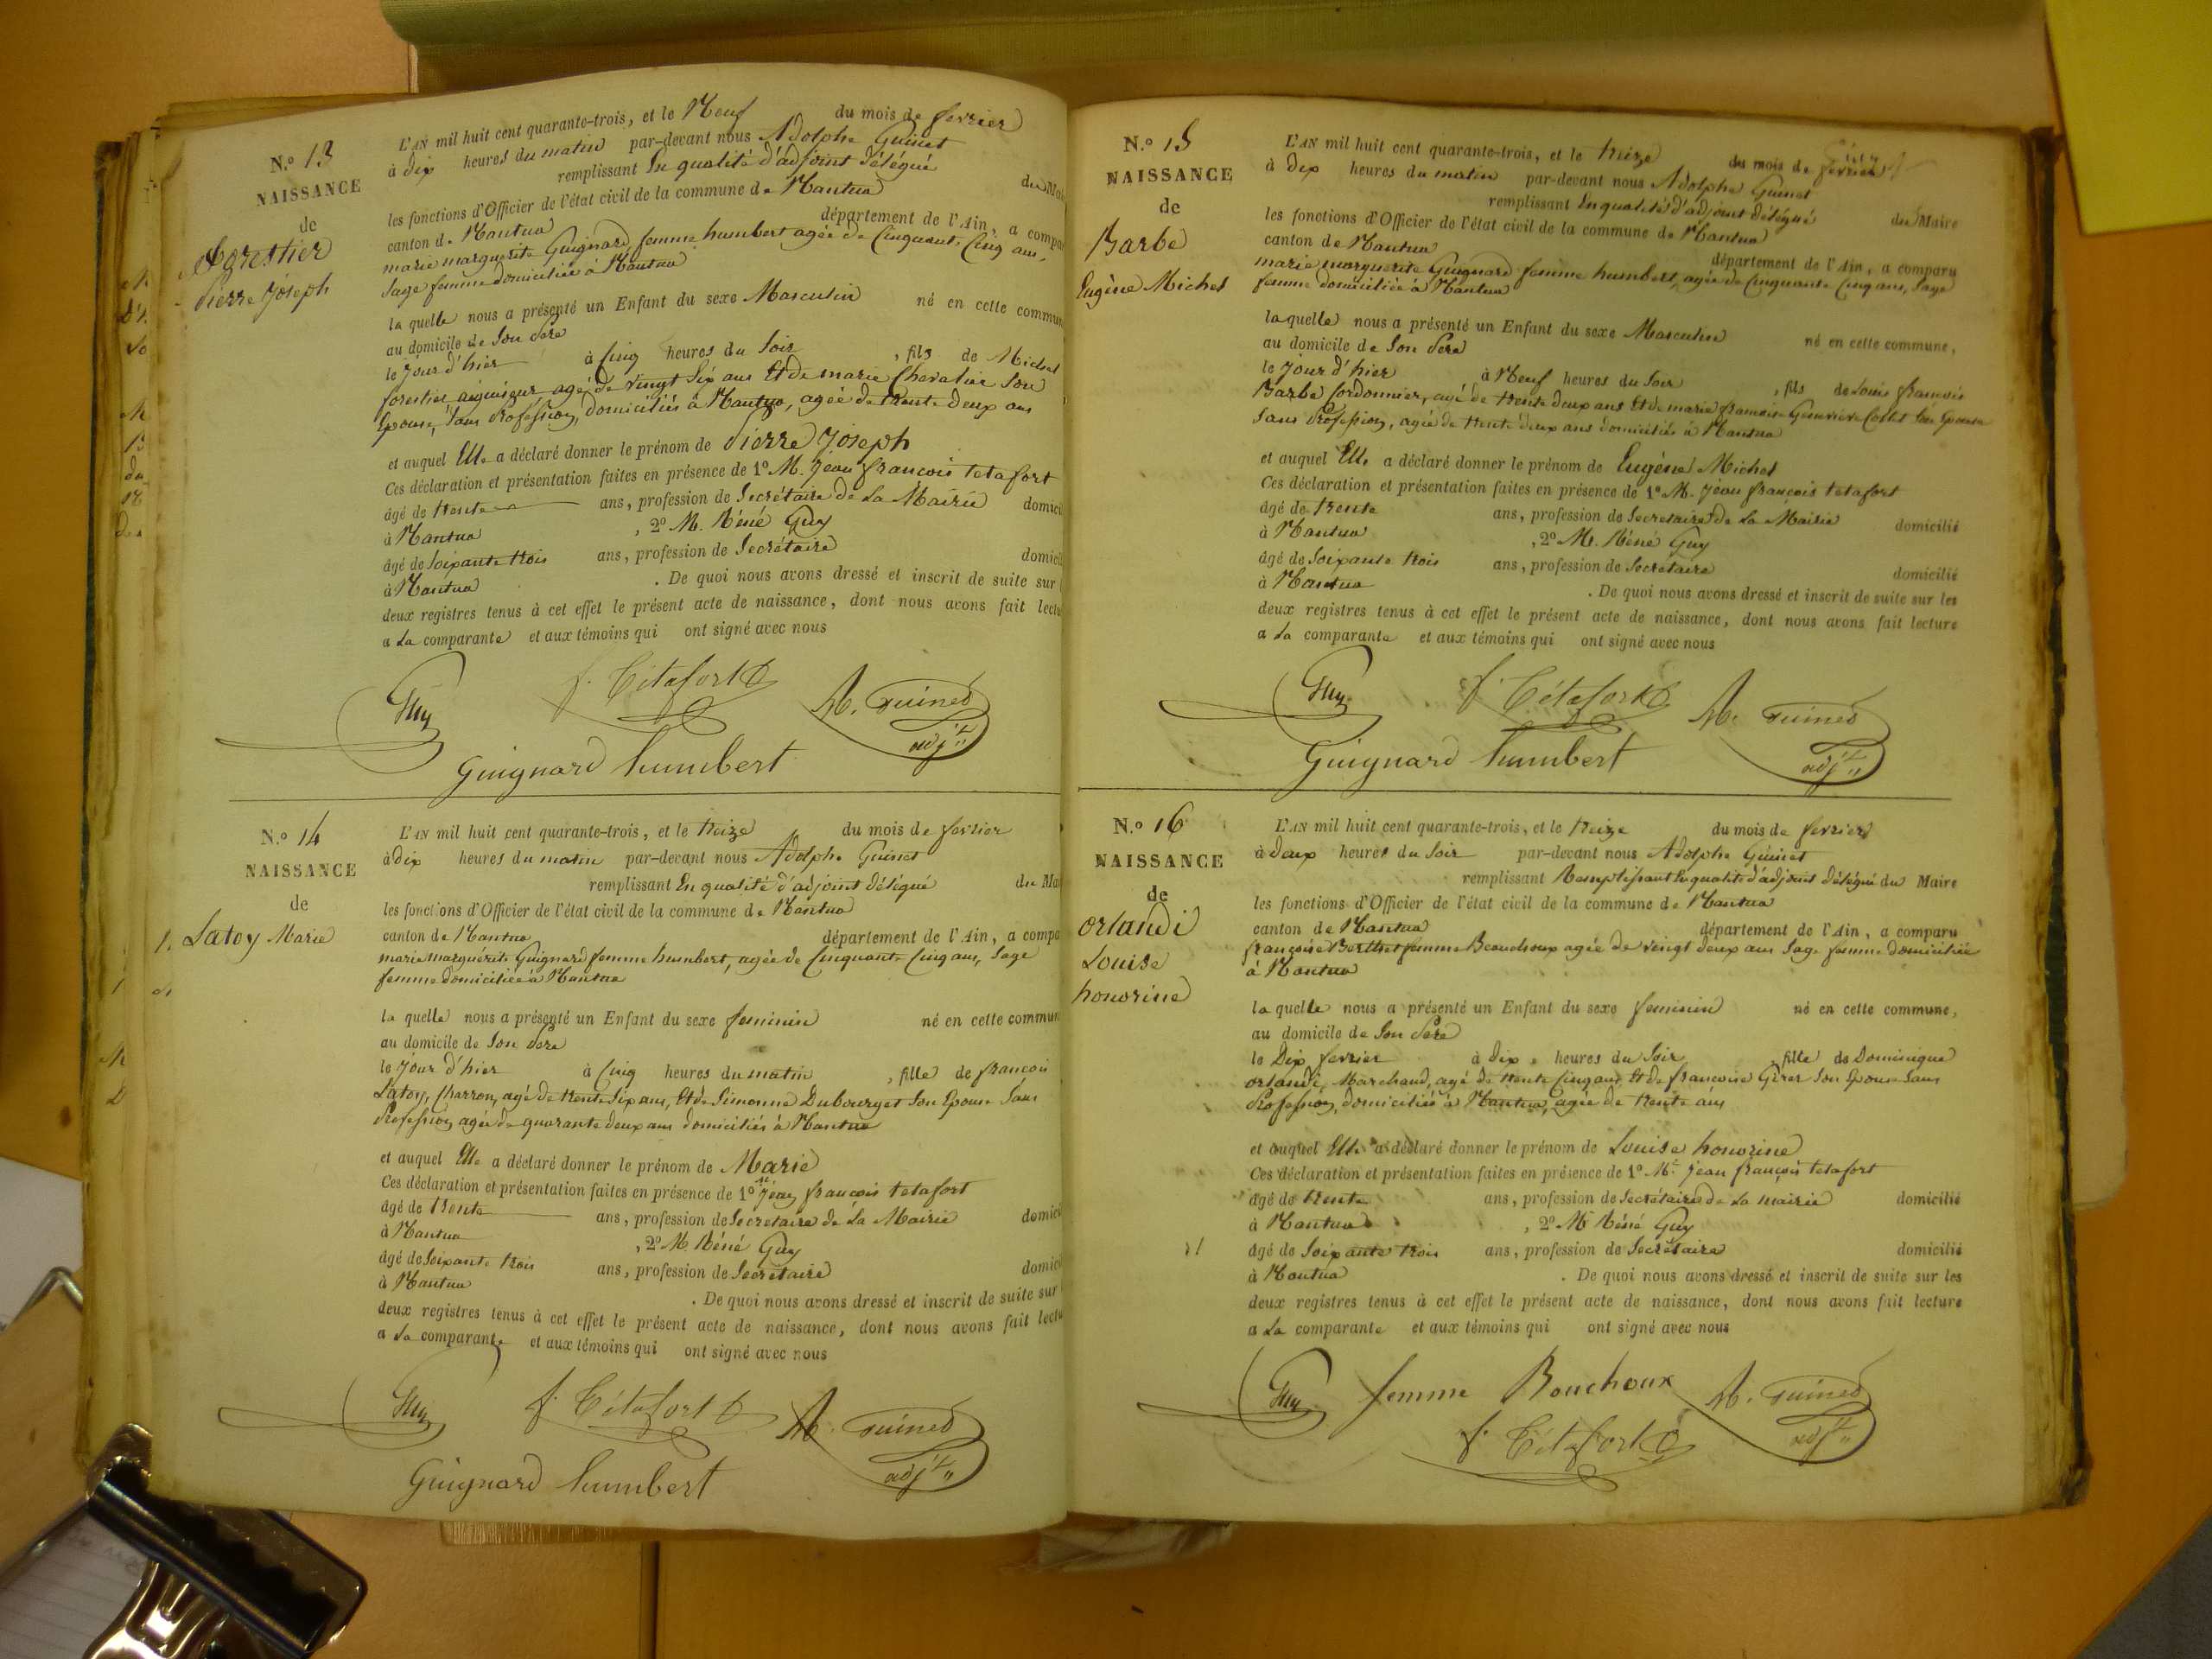 N.º 13
NAISSANCE
de
forestier
Pierre Joseph
L'AN mil huit cent quarante-trois, et le Neuf du mois de fevrier
à dix heures du matin par-devant nous Adolphe Guinet
remplissant En qualité d'adjoint délégué du Mai
les fonctions d'Officier de l'état civil de la commune de Nantua
canton de Nantua département de l'Ain, a compar
marie marguerite Guignard femme humbert agée de Cinquante Cinq ans,
Sage femme domiciliée à Nantua
la quelle nous a présenté un Enfant du sexe Masculin né en cette commun
au domicile de Son Pere
le Jour d'hier à Cinq heures du Soir, fils de Michel
forestier aiguiseur agé de vingt Six ans Et de marie Chevalier Son
Epouse, Sans Profession, domiciliés à Nantua, agée de trente deux ans
et auquel Elle a déclaré donner le prénom de Pierre Joseph
Ces déclaration et présentation faites en présence de 1º M. Jean francois tetafort
âgé de trente ans, profession de Secrétaire de La Mairie domicil
à Nantua, 2º M. Réné Guy
âgé de Soixante trois ans, profession de Secrétaire domicil
à Nantua. De quoi nous avons dressé et inscrit de suite sur l
deux registres tenus à cet effet le présent acte de naissance, dont nous avons fait lectu
a La comparante et aux témoins qui ont signé avec nous
Guy f. Tétafort A. Guinet
adj.t
Guignard humbert
N.º 14
NAISSANCE
de
Latoy Marie
L'AN mil huit cent quarante-trois, et le treize du mois de fevrier
à dix heures du matin par-devant nous Adolphe Guinet
remplissant En qualité d'adjoint délégué du Mai
les fonctions d'Officier de l'état civil de la commune de Nantua
canton de Nantua département de l'Ain, a compa
marie marguerite Guignard femme humbert, agée de Cinquante Cinq ans, Sage
femme domiciliée à Nantua
la quelle nous a présenté un Enfant du sexe feminin né en cette commun
au domicile de Son Pere
le Jour d'hier à Cinq heures du matin, fille de francois
Latoy, Charron, agé de trente Six ans, Et de Simonne Dubourget Son Epouse Sans
Profession agée de quarante deux ans domiciliés à Nantua
et auquel Elle a déclaré donner le prénom de Marie
Ces déclaration et présentation faites en présence de 1º M Jean francois tetafort
âgé de trente ans, profession de Secretaire de La Mairie domici
à Nantua, 2º M Réné Guy
âgé de Soixante trois ans, profession de Secrétaire domici
à Nantua. De quoi nous avons dressé et inscrit de suite sur
deux registres tenus à cet effet le présent acte de naissance, dont nous avons fait lectu
a La comparante et aux témoins qui ont signé avec nous
Guy f. Tétafort A. Guinet
adj.t
Guignard humbert
N.º 15
NAISSANCE
de
Barbe
Eugène Michel
L'AN mil huit cent quarante-trois, et le treize du mois de fevrier
à dix heures du matin par-devant nous Adolphe Guinet
remplissant En qualité d'adjoint délégué du Maire
les fonctions d'Officier de l'état civil de la commune de Nantua
canton de Nantua département de l'Ain, a comparu
marie marguerite Guignard femme humbert, agée de Cinquante Cinq ans, Sage
femme domiciliée à Nantua
la quelle nous a présenté un Enfant du sexe Masculin né en cette commune,
au domicile de Son Pere
le Jour d'hier à Neuf heures du Soir, fils de Louis francois
Barbe Cordonnier, agé de trente deux ans Et de marie francoise Genevieve Collet Son Epouse
Sans Profession, agée de trente deux ans domiciliés à Nantua
et auquel Elle a déclaré donner le prénom de Eugène Michel
Ces déclaration et présentation faites en présence de 1º M. Jean françois tetafort
âgé de trente ans, profession de Secretaire de La Mairie domicilié
à Nantua, 2º M. Réné Guy
âgé de Soixante trois ans, profession de Secretaire domicilié
à Nantua. De quoi nous avons dressé et inscrit de suite sur les
deux registres tenus à cet effet le présent acte de naissance, dont nous avons fait lecture
a La comparante et aux témoins qui ont signé avec nous
Guy f. Tétafort A. Guinet
adj.t
Guignard humbert
N.º 16
NAISSANCE
de
orlandi
Louise
honorine
L'AN mil huit cent quarante-trois, et le treize du mois de fevrier
à deux heures du Soir par-devant nous Adolphe Guinet
remplissant Remplissant En qualité d'adjoint délégué du Maire
les fonctions d'Officier de l'état civil de la commune de Nantua
canton de Nantua département de l'Ain, a comparu
françoise Berthet femme Beauchoux agée de vingt deux ans Sage femme domiciliée
à Nantua
la quelle nous a présenté un Enfant du sexe feminin né en cette commune,
au domicile de Son Pere
le Dix fevrier à dix heures du Soir, fille de Dominique
orlandi, Marchand, agé de trente Cinq ans, Et de francoise Gérer Son Epouse Sans
Profession, domiciliés à Nantua, agée de trente ans
et auquel Elle a déclaré donner le prénom de Louise honorine
Ces déclaration et présentation faites en présence de 1º M. Jean françois tetafort
âgé de trente ans, profession de Secrétaire de La mairie domicilié
à Nantua, 2º M Réné Guy
âgé de Soixante trois ans, profession de Secrétaire domicilié
à Nantua. De quoi nous avons dressé et inscrit de suite sur les
deux registres tenus à cet effet le présent acte de naissance, dont nous avons fait lecture
a La comparante et aux témoins qui ont signé avec nous
Guy femme Bouchoux A. Guinet
f. Tétafort adj.t